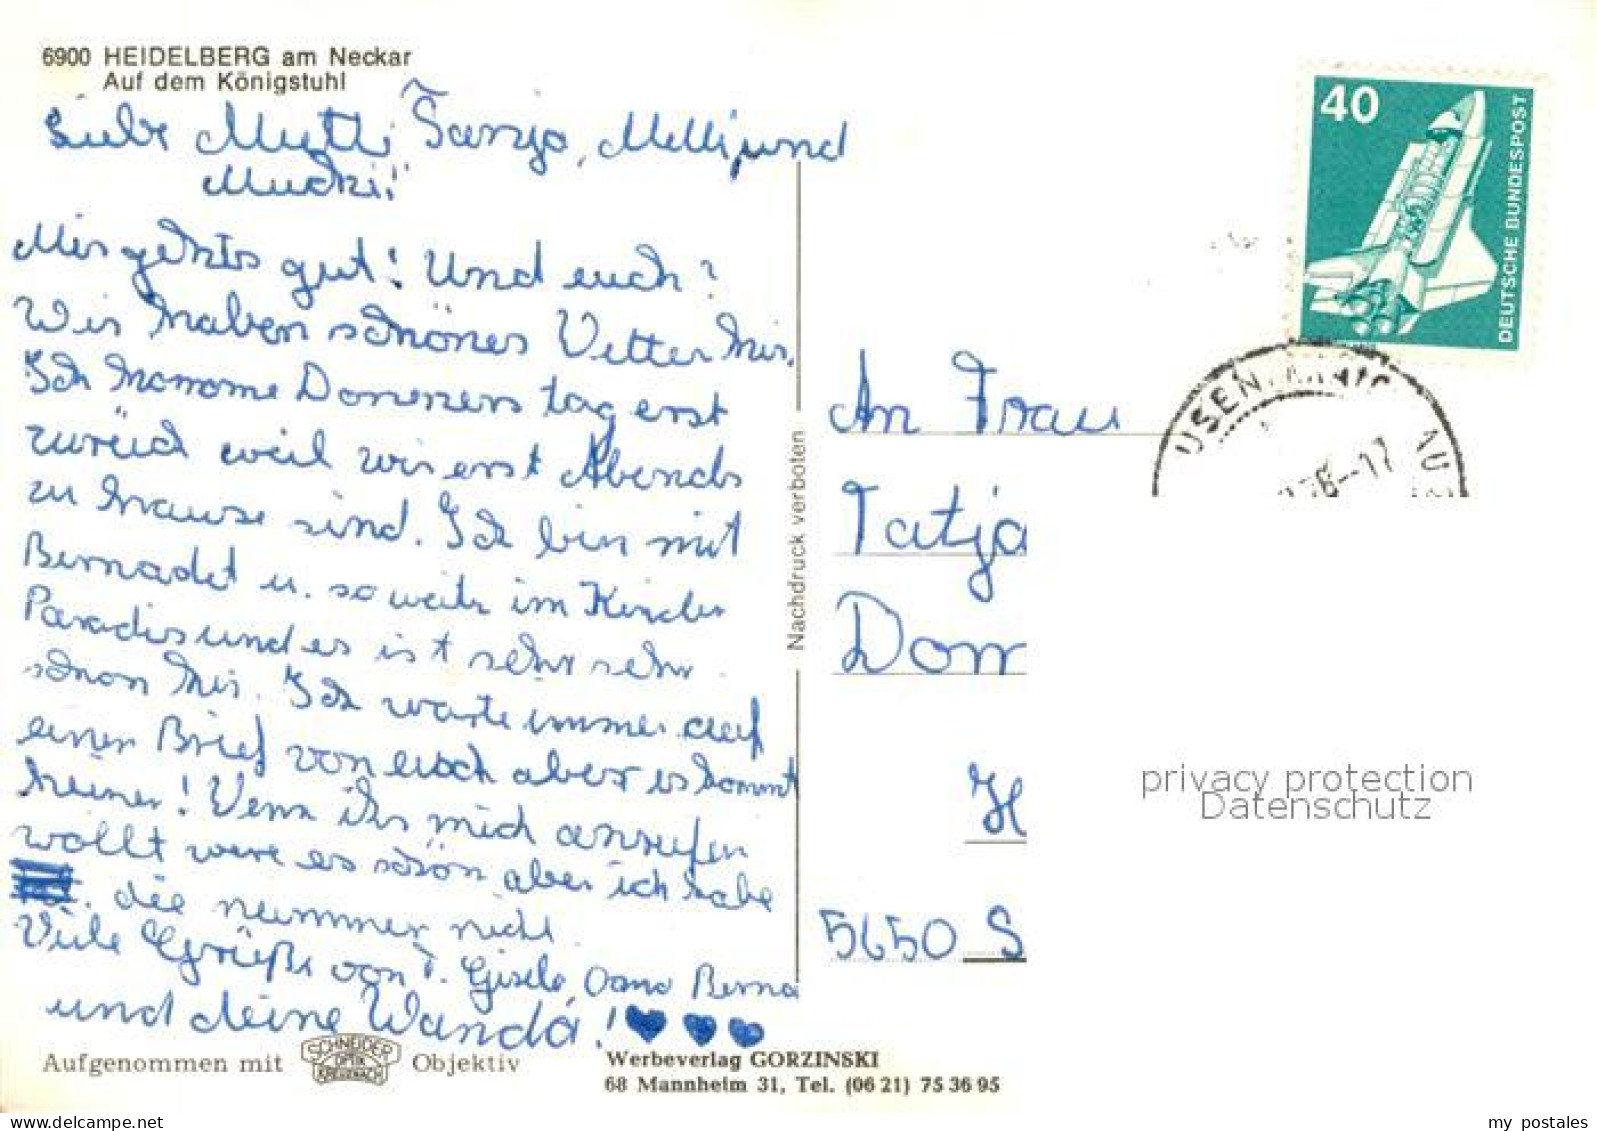 6900 HEIDELBERG am Neckar
Auf dem Königstuhl
Liebe Mutti Tanja, Melli, und
Mucki!
Mir gehts gut! Und euch?
Wir haben schönes Vetter hir.
Ich komme Donnerstag erst
zurück weil wir erst Abends
zu hause sind. Ich bin mit
Bernadet u. so weite im Kinder
Paradis und es ist sehr sehr
schön hir. Ich warte immer auf
einen Brief von euch aber es kommt
keiner! Venn ihr mich anrufen
wollt were es schön aber ich habe
die nummer nicht
Viele Grüße von T. Gisela Bernd
und deine Wanda!
Aufgenommen mit SCHNEIDER OPTIK KREUZNACH Objektiv
Werbeverlag GORZINSKI
68 Mannheim 31, Tel. (06 21) 75 36 95
Nachdruck verboten
40
DEUTSCHE BUNDESPOST
USEN
-17
An Frau
Tatja
Dom
H
5650 S
privacy protection
Datenschutz
delcampe.net
my_postales